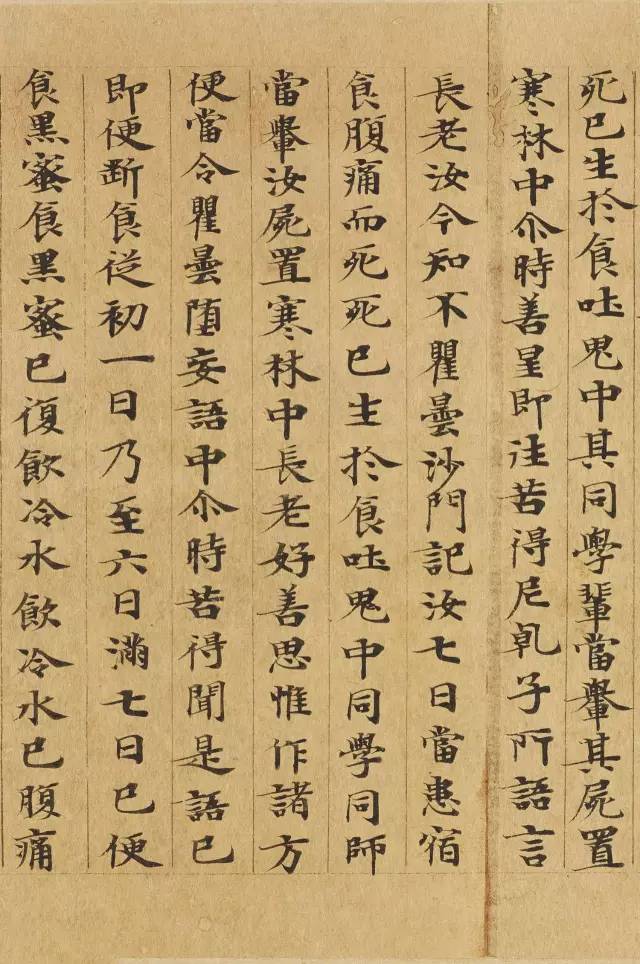 死已生於食吐鬼中其同學輩當轝其屍置
寒林中尒時善星即往苦得尼乹子所語言
長老汝今知不瞿曇沙門記汝七日當患宿
食腹痛而死死已生於食吐鬼中同學同師
當轝汝屍置寒林中長老好善思惟作諸方
便當令瞿曇墮妄語中尒時苦得聞是語已
即便断食從初一日乃至六日滿七日已便
食黑蜜食黑蜜已復飲冷水飲冷水已腹痛